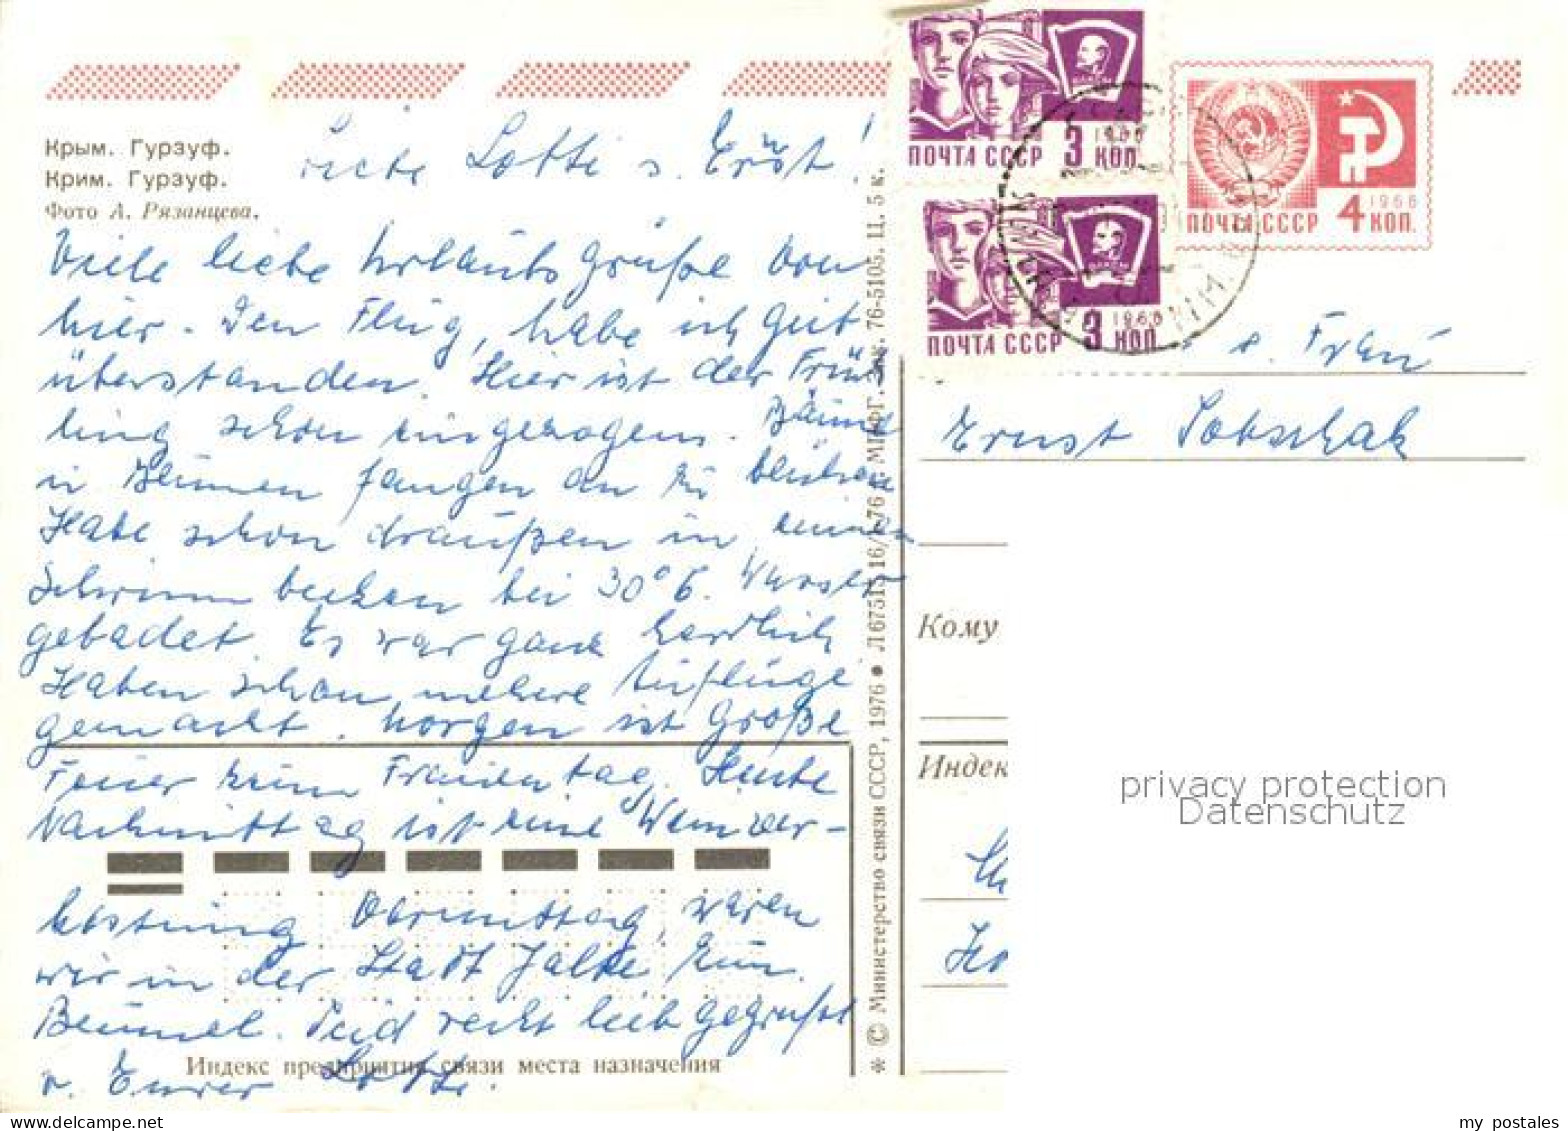 Крым. Гурзуф.
Крим. Гурзуф.
Фото А. Рязанцева.
Lotti u. Ernst!
Viele liebe Urlaubsgrüße von
hier. Den Flug, habe ich gut
überstanden. Hier ist der Früh
ling schon eingezogen. Bäume
u Blumen fangen an zu blühen
Habe schon draußen in einem
Schwimmbecken bei 30° C. Wasser
gebadet. Es war ganz herrlich
Haben schon mehrere Ausflüge
gemacht. Morgen ist Große
Feier zum Frauentag. Heute
Nachmittag ist eine Weinver-
kostung Vormittag, waren
wir in der Stadt Jalta zum
Bummel. Seid recht lieb gegrüßt
v. Eurer Lotti.
Индекс предприятия связи места назначения
* © Министерство связи СССР, 1976 • 76-5105. Ц. 5 к.
ПОЧТА СССР 3 КОП. 1966
ПОЧТА СССР 3 КОП 1966
ПОЧТА СССР 4 КОП. 1966
Frau
Ernst Sobschak
Кому
Индек
privacy protection
Datenschutz
my postales